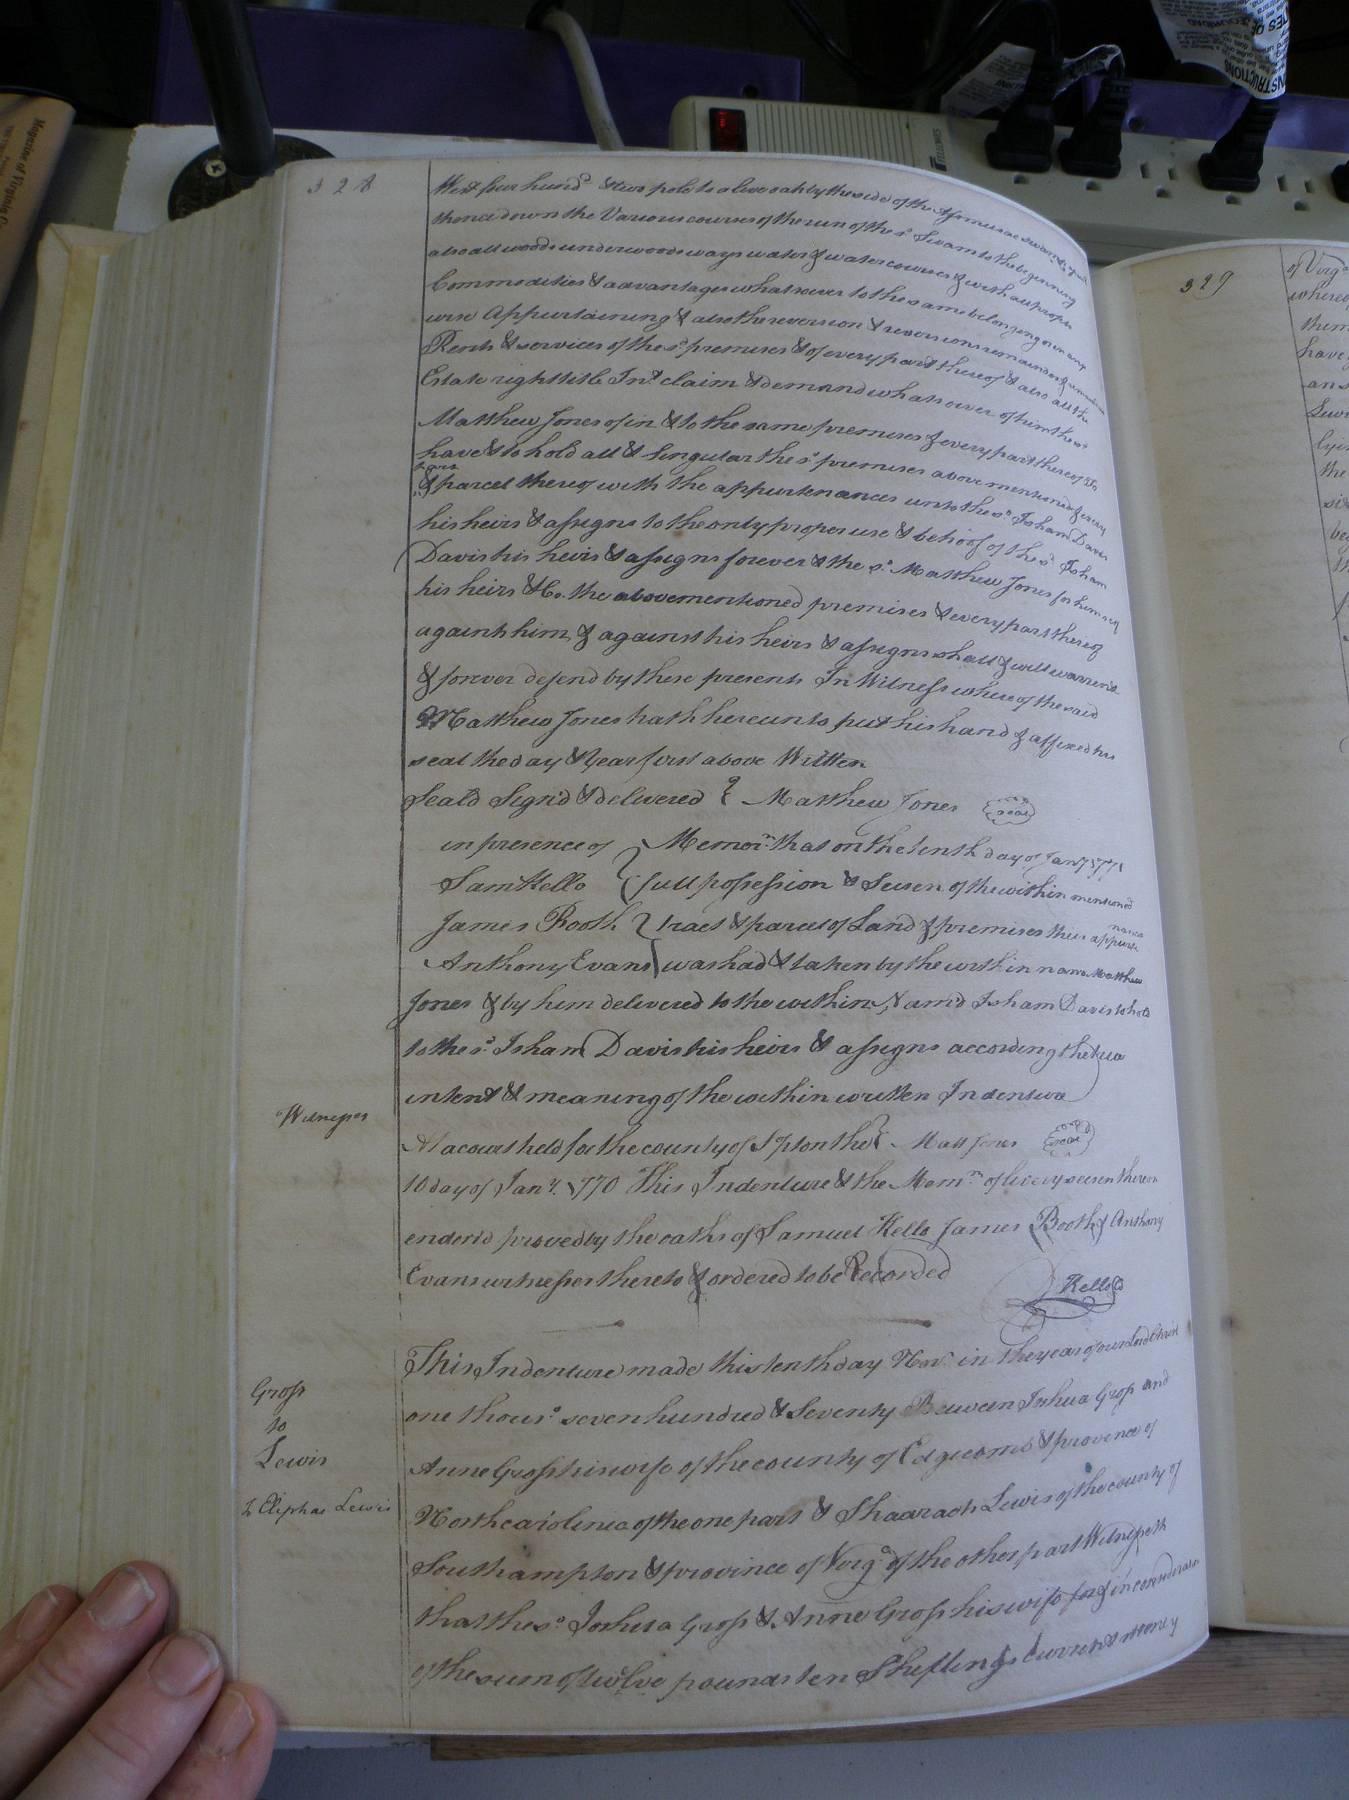 328
West four hund.d & two pole to a live oak by the side of the Assamusac swamp
thence down the Various courses of the run of the s.d Swam to the beginning
also all woods underwoods ways water & watercourses & with all profits
Commodities & advantages whatsoever to the same belonging or in any
wise Appurtaining & also the reversion & reversions remainder &
Rents & services of the s.d premises & of every part thereof & also all the
Estate right title Int.t claim & demand whatsoever of him the s.d
Matthew Jones of in & to the same premises & every part thereof To
have & to hold all & Singular the s.d premises above mentioned & every
part
& parcel thereof with the appurtenances unto the s.d Isham Davis
his heirs & assigns to the only proper use & behoof of the s.d Isham
Davis his heirs & assigns forever & the s.d Matthew Jones for himself
his heirs &c. the abovementioned premises & every part thereof
against him & against his heirs & assigns shall & will warrant
& forever defend by these presents In Witness whereof the said
Matthew Jones hath hereunto put his hand & affixed his
seal the day & year first above Written
Seal'd Sign'd & delivered } Matthew Jones seal
in presence of } Memor.m that on the tenth day of Jan.y 1771
Sam Kello full possession & Seisen of the within mentioned
James Booth tract & parcel of Land & premises
Anthony Evans was had & taken by the within name Matthew
Jones & by him delivered to the within Nam'd Isham Davis to hold
to the s.d Isham Davis his heirs & assigns according the true
intent & meaning of the within written Indenture
Witnesses
At a court held for the county of S'pton the } Matt Jones seal
10 day of Jan.y 1770 This Indenture & the Mem.m of livery seisen thereon
endors'd proved by the oaths of Samuel Kello James Booth & Anthony
Evans witnesses thereto & ordered to be Recorded
Kello
This Indenture made this tenth day Nov.r in the year of our Lord Christ
Gross
to
Lewis
one thous.d seven hundred & Seventy Between Joshua Gross and
Anne Gross his wife of the county of Edgecomb & province of
North carolinia of the one part & Shaarach Lewis of the county of
Southampton & province of Virg.a of the other part Witnesseth
that the s.d Joshua Gross & Anne Gross his wife for & in consideration
of the sum of twelve pounds ten Shillings Current money
Eliphas Lewis
329
of Virg.a
where
them
have
the
Magazine of Virginia
FELLOWES
INSTRUCTIONS